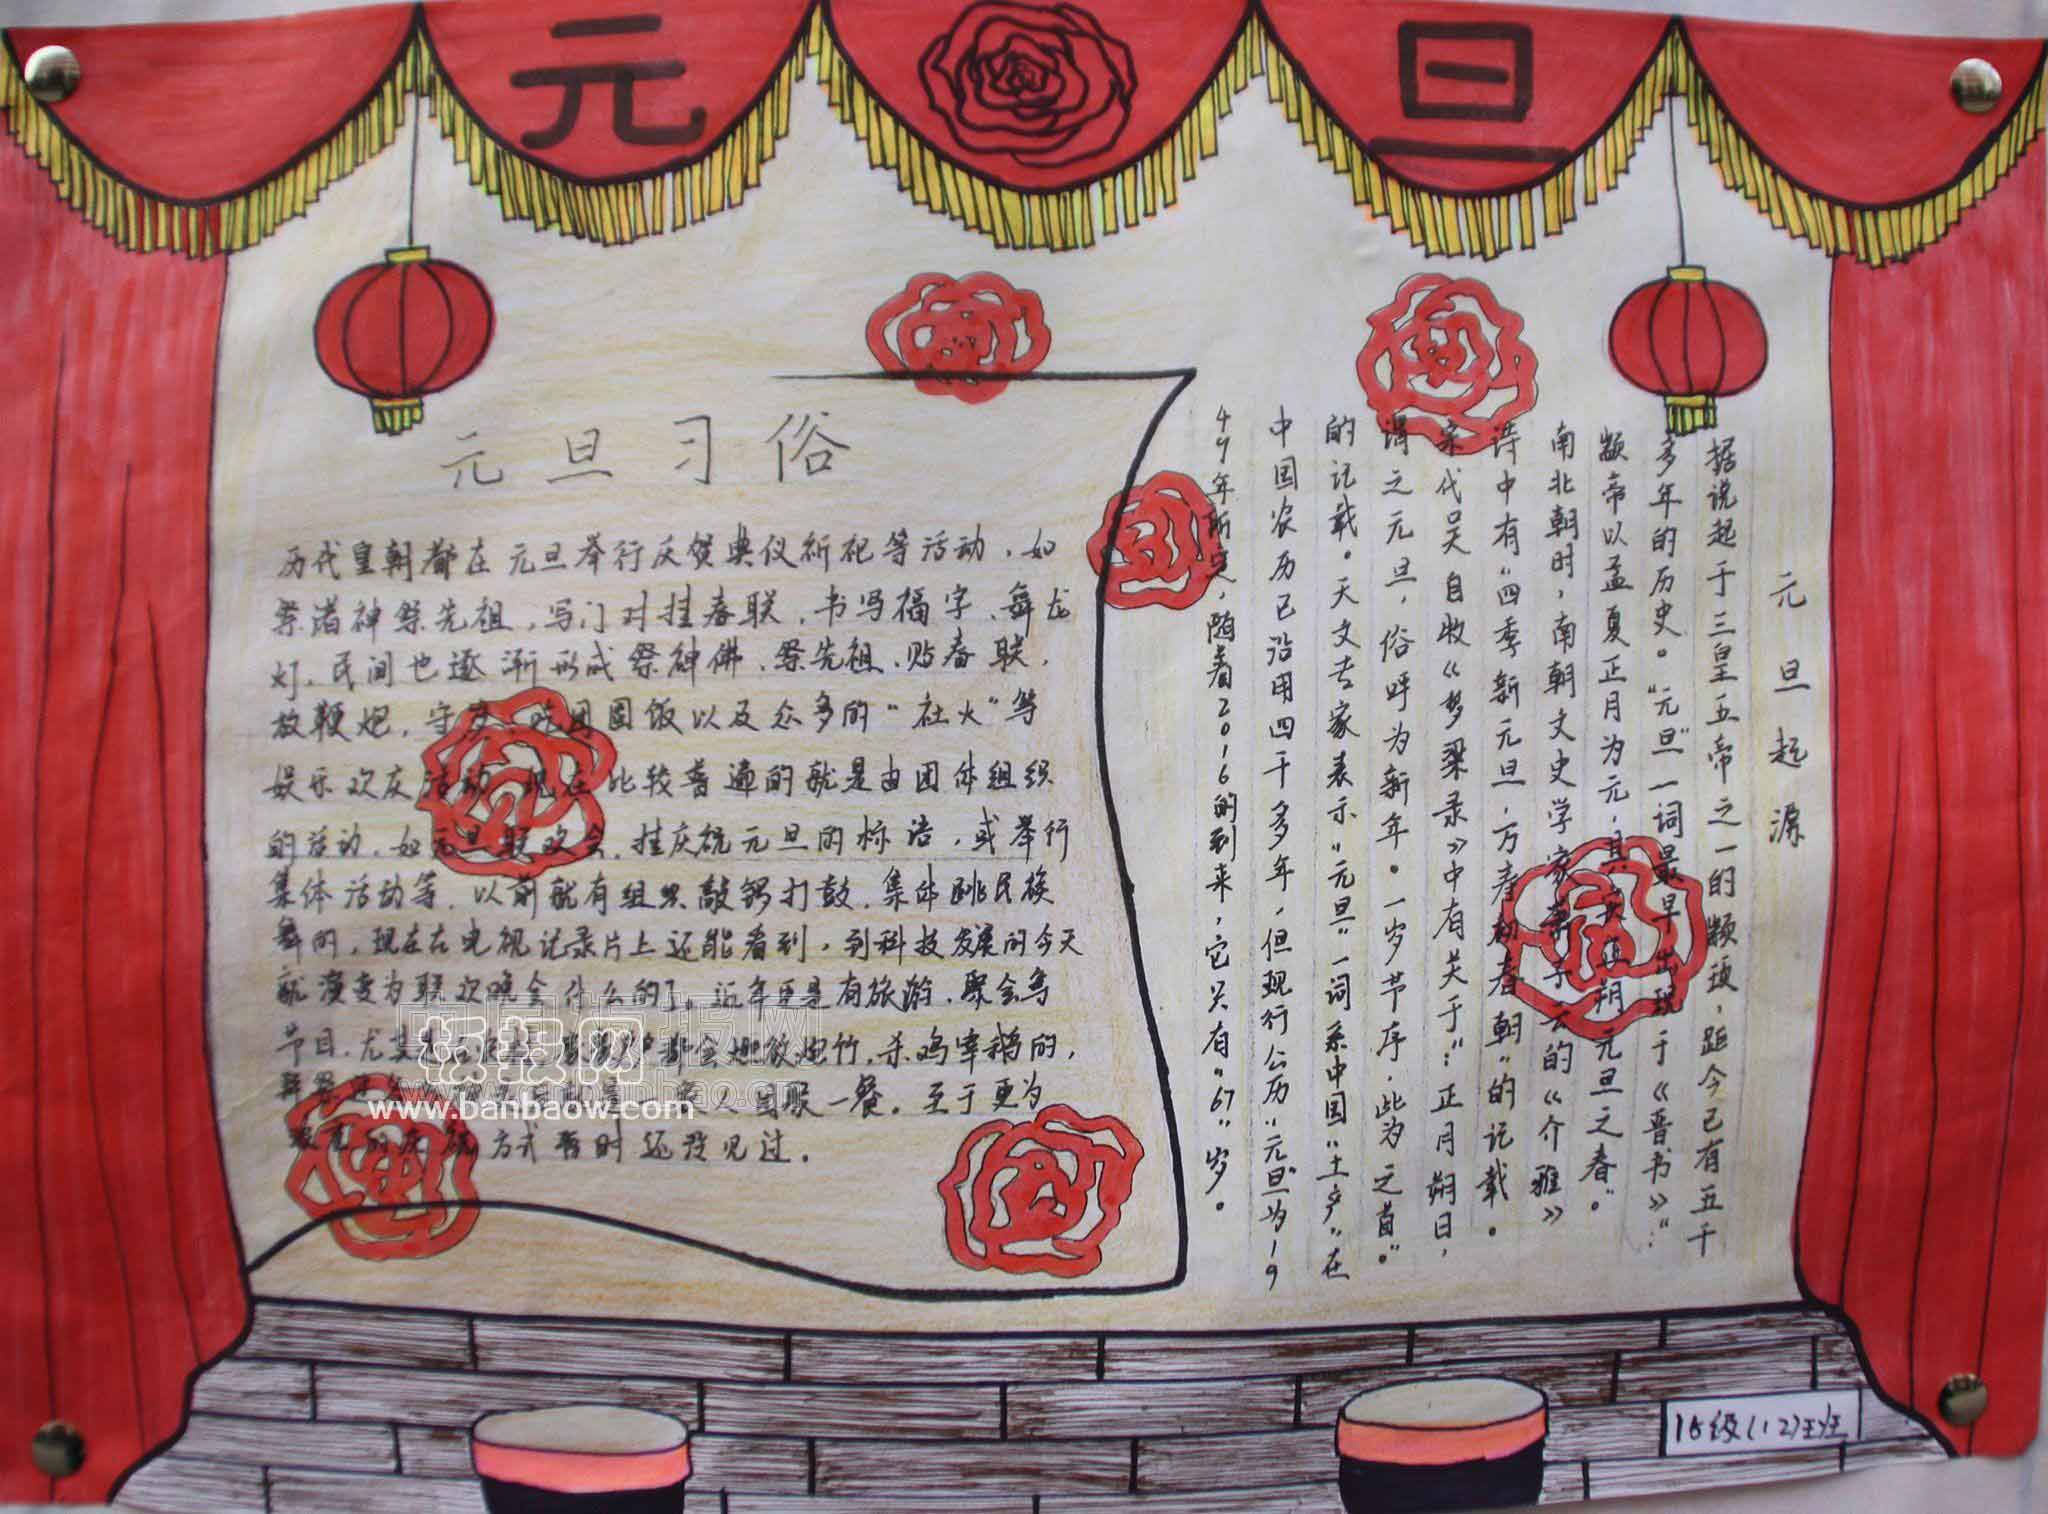 元旦
元旦习俗
历代皇朝都在元旦举行庆贺典仪祈祀等活动，如
祭诸神祭先祖，写门对挂春联，书写福字、舞龙
灯，民间也逐渐形成祭神佛、祭先祖、贴春联、
放鞭炮，守岁、吃团圆饭以及众多的“社火”等
娱乐欢庆活动 现在比较普遍的就是由团体组织
的活动，如元旦联欢会，挂庆祝元旦的标语，或举行
集体活动等，以前就有组织敲锣打鼓，集体跳民族
舞的，现在在电视记录片上还能看到，到科技发展的今天
就演变为联欢晚会什么的了。近年更是有旅游、聚会等
节目，尤其 都会燃放炮竹，杀鸡宰鹅的，
团聚一餐。至于更为
方式暂时还没见过。
元旦起源
据说起于三皇五帝之一的颛顼，距今已有五千
多年的历史。“元旦”一词最早出现于《晋书》：“
颛帝以孟夏正月为元，其实正朔元旦之春”。
南北朝时，南朝文史学家萧子云的《介雅》
诗中有“四季新元旦，万寿初春朝”的记载。
宋代吴自牧《梦梁录》中有关于：“正月朔日，
谓之元旦，俗呼为新年。一岁节序，此为之首。”
的记载。天文专家表示“元旦”一词系中国“土产”在
中国农历已沿用四千多年，但现行公历“元旦”为19
49年所定，随着2016的到来，它只有“67”岁。
16级(12)班
板报网
www.banbaow.com